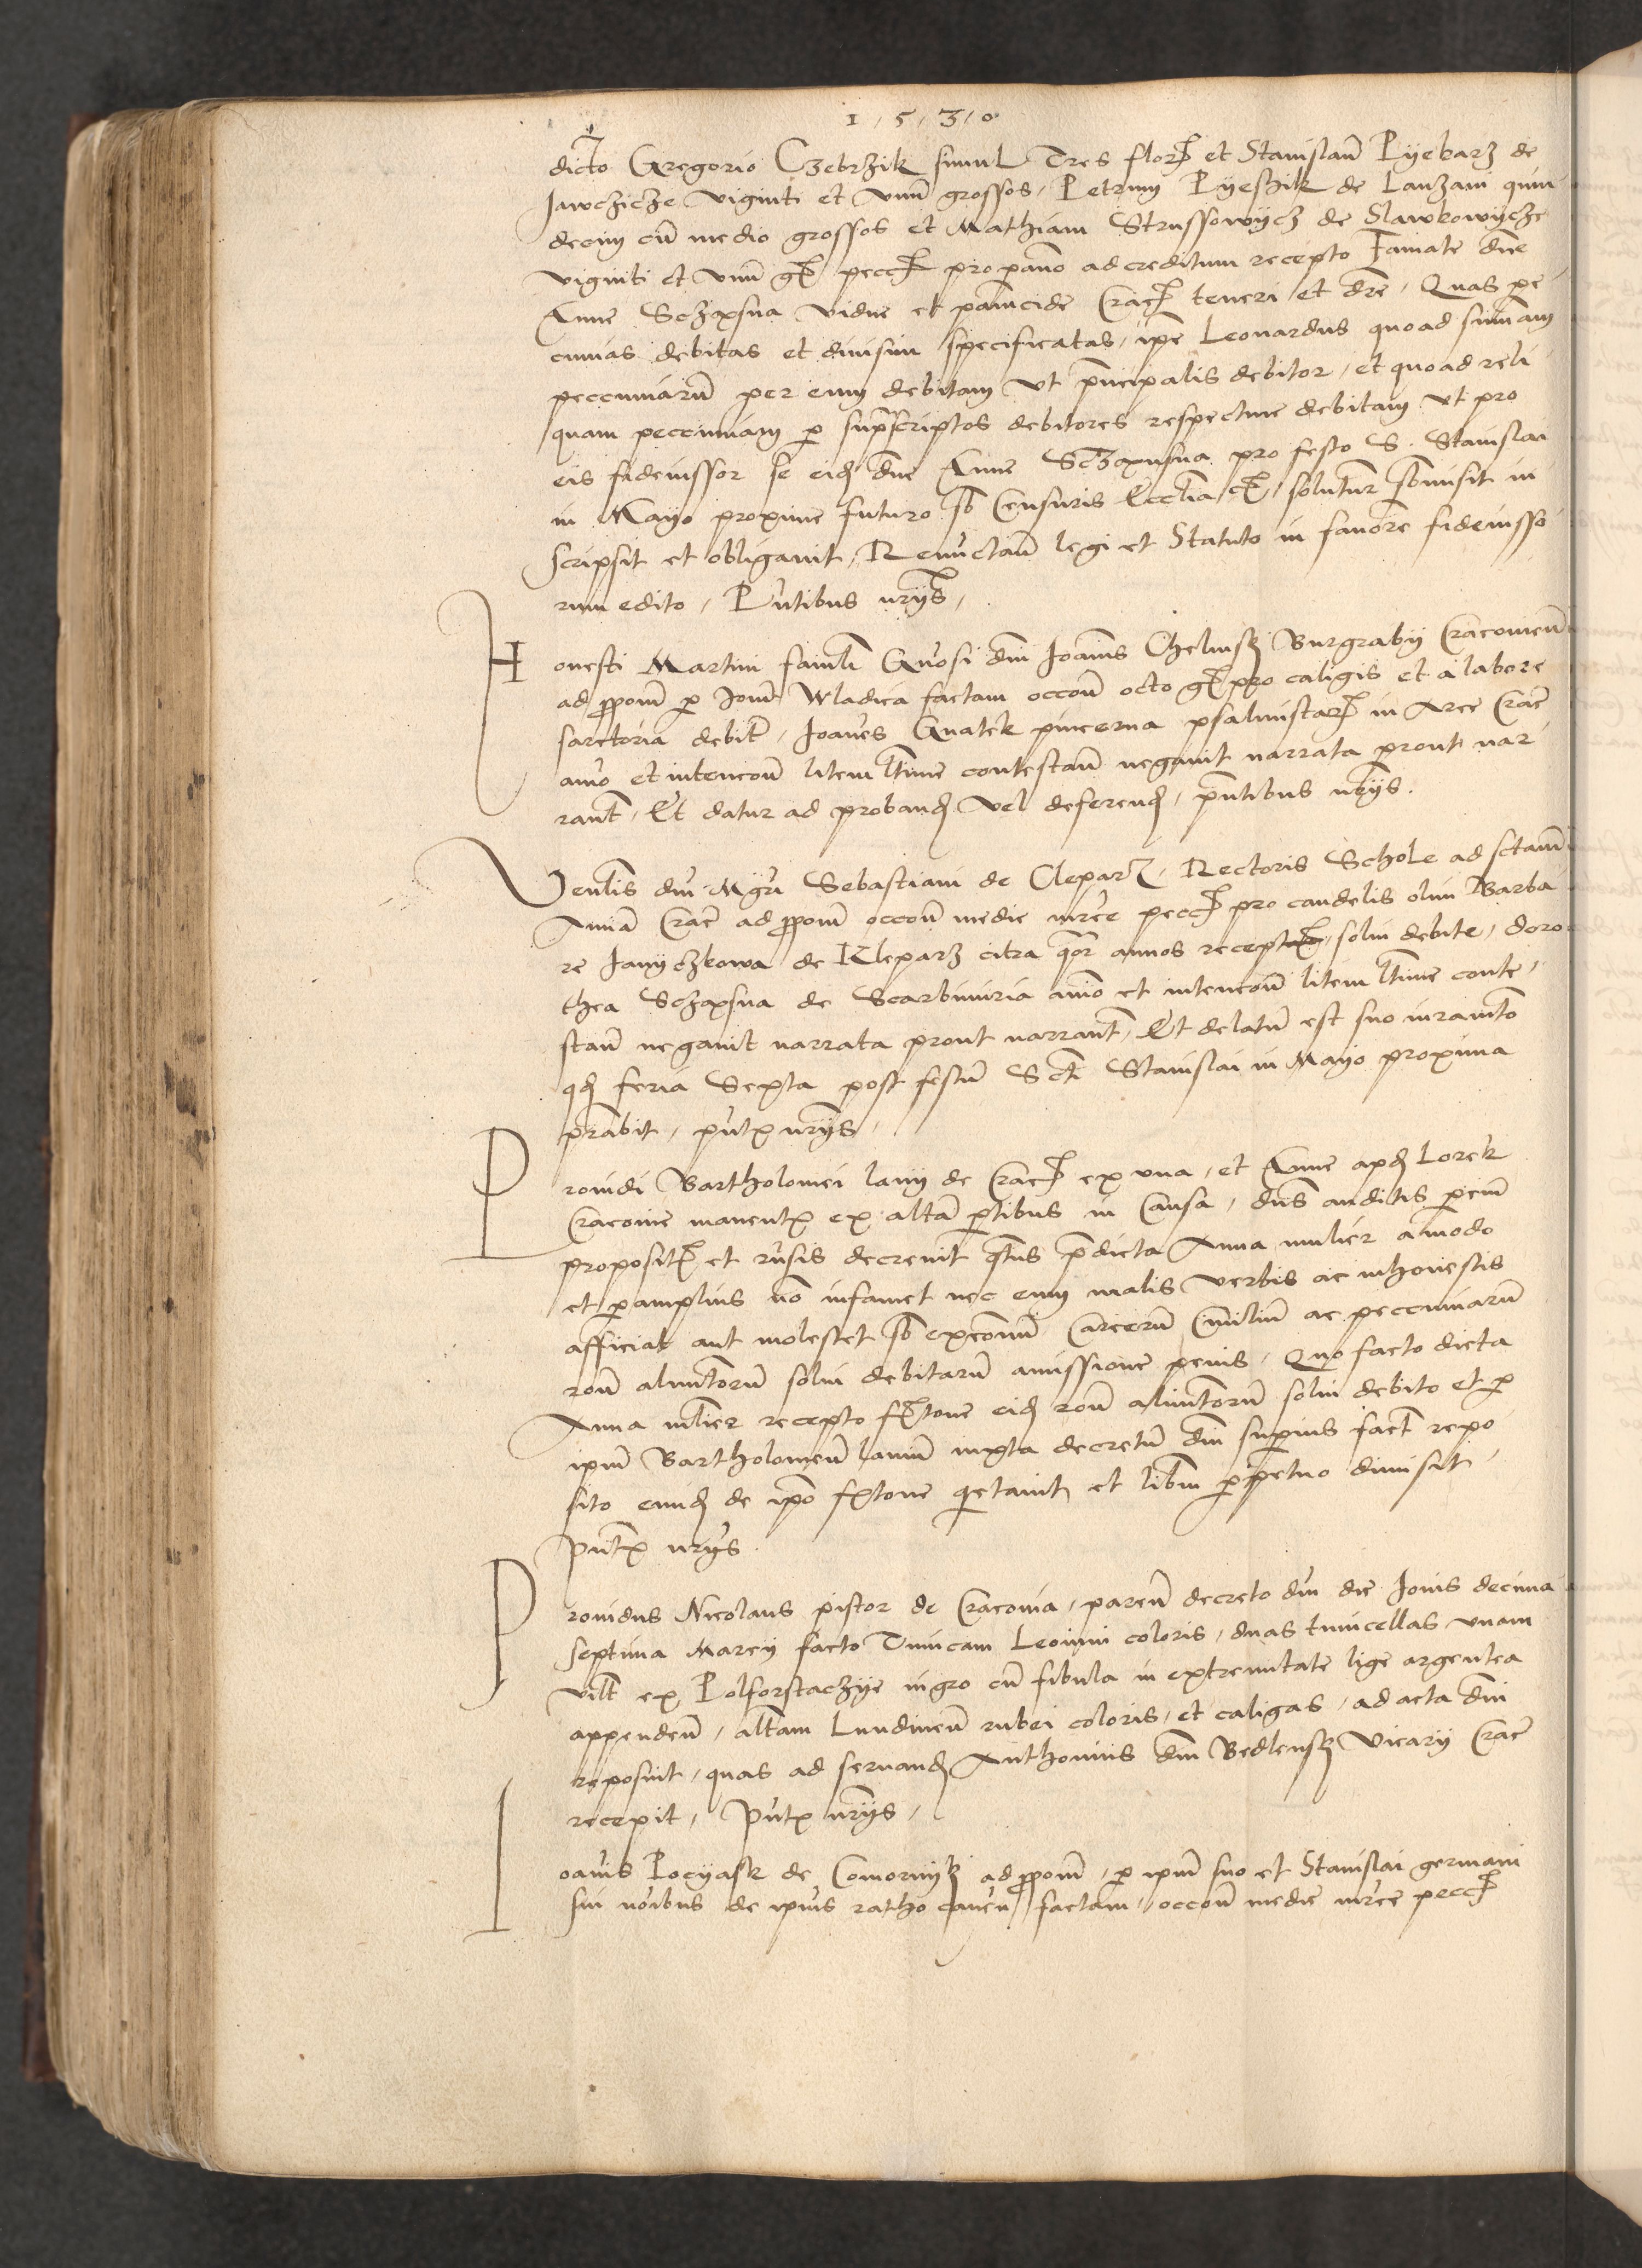 1 5 3 0
dicto Gregorio Czebrzik simul Tres flor et Stanislaū Pyekarz de
Jawczicze viginti et vnū grossos, Petrum Pyeszik de Lanzani quin
decim cū medio grossos et Mathiam Strussowycz de Slawkowycze
viginti et vnū gr pecc pro panno ad creditum recepto Famate dne
Anne Schapsna vidue et pannicide Crac teneri et dre, Quas pe
cunias debitas et diuisim specificatas, ipe Leonardus quoad sumam
peccuniarū per eum debitam vt pncipalis debitor, et quoad reli
quam peccuniam p suprascriptos debitores respectiue debitam vt pro
eis fideiussor se eid dne Anne pro festo S. Stanislai
in Mayo proxime futuro sb Censuris Ecclia soluturum sbmisit in
scripsit et obligauit, Renūctaū legi et Statuto in fauore fideiusso
rum edito, Pntibus nrijs,
Honesti Martini famli Gnosi dni Joānis Chelmsky Burgrabij Cracouieñ
ad ppom p Joem Wladica factam occoñ octo gr pro caligis et a labore
sartoria debit, Joānes Gnatek pincerna psalmistar in Arce Crac
aīo et intencoñ litem ltime contestañ negauit narrata prout nar
rant, Et datur ad proband vel deferend, pntibus nrijs.
Venlis dni Mgri Sebastiani de Clepar, Rectoris Schole ad sctam
Annā Crac ad ppom occoñ medie mrce pecc pro candelis olim Barba
re Janyczkowa de Kleparz citra qtuor annos recept, solui debite, Doro
thea de Scarbimiria aīo et intencoñ litem ltime conte
stañ negauit narrata prout narrant, Et delatū est suo iuramto
qd feria Sexta post festū Scti Stanislai in Mayo proxima
prabit, pntx nrijs,
Prouidi Bartholomei lanij de Crac ex vna, et Anne apd Lorek
Cracouie manentx ex altā ptibus in Causa, dns auditis p eum
proposit et rusis decreuit qtnus pdicta Anna mulier amodo
et p amplius nō infamet nec eum malis verbis ac inhonestis
afficiat aut molestet sb excom Carcerū Ciuilium ac peccuniarū
roñ alimtorū solui debitarū amissione penis, Quo facto dicta
Anna mlier recepto frtone eid roñ alimtorū solui debito et p
ipm Bartholomeū laniū iuxta decretū dni superius fact repo
sito eund de ipo frtone qetauit et libm ppetuo dimisit
Pntx nrijs.
Prouidus Nicolaus pistor de Cracouia, pareñ decreto dni die Jouis decima
septima Marcij facto Tunicam Leonini coloris, duas tunicellas vnam
vilt ex Polforstaczye nigro cū fibula in extremitate lige argentea
appendeñ, altam Lundineñ rubei coloris, et caligas, ad acta dni
reposuit, quas ad seruand Anthonius dni Bedlensky Vicarij Crac
recepit, Pntx nrijs,
Joanis Pocyask de Comornyk ad ppom, p ipm suo et Stanislai germani
sui noibus de ipius ratho caueñ factam, occoñ medie mrce pecc